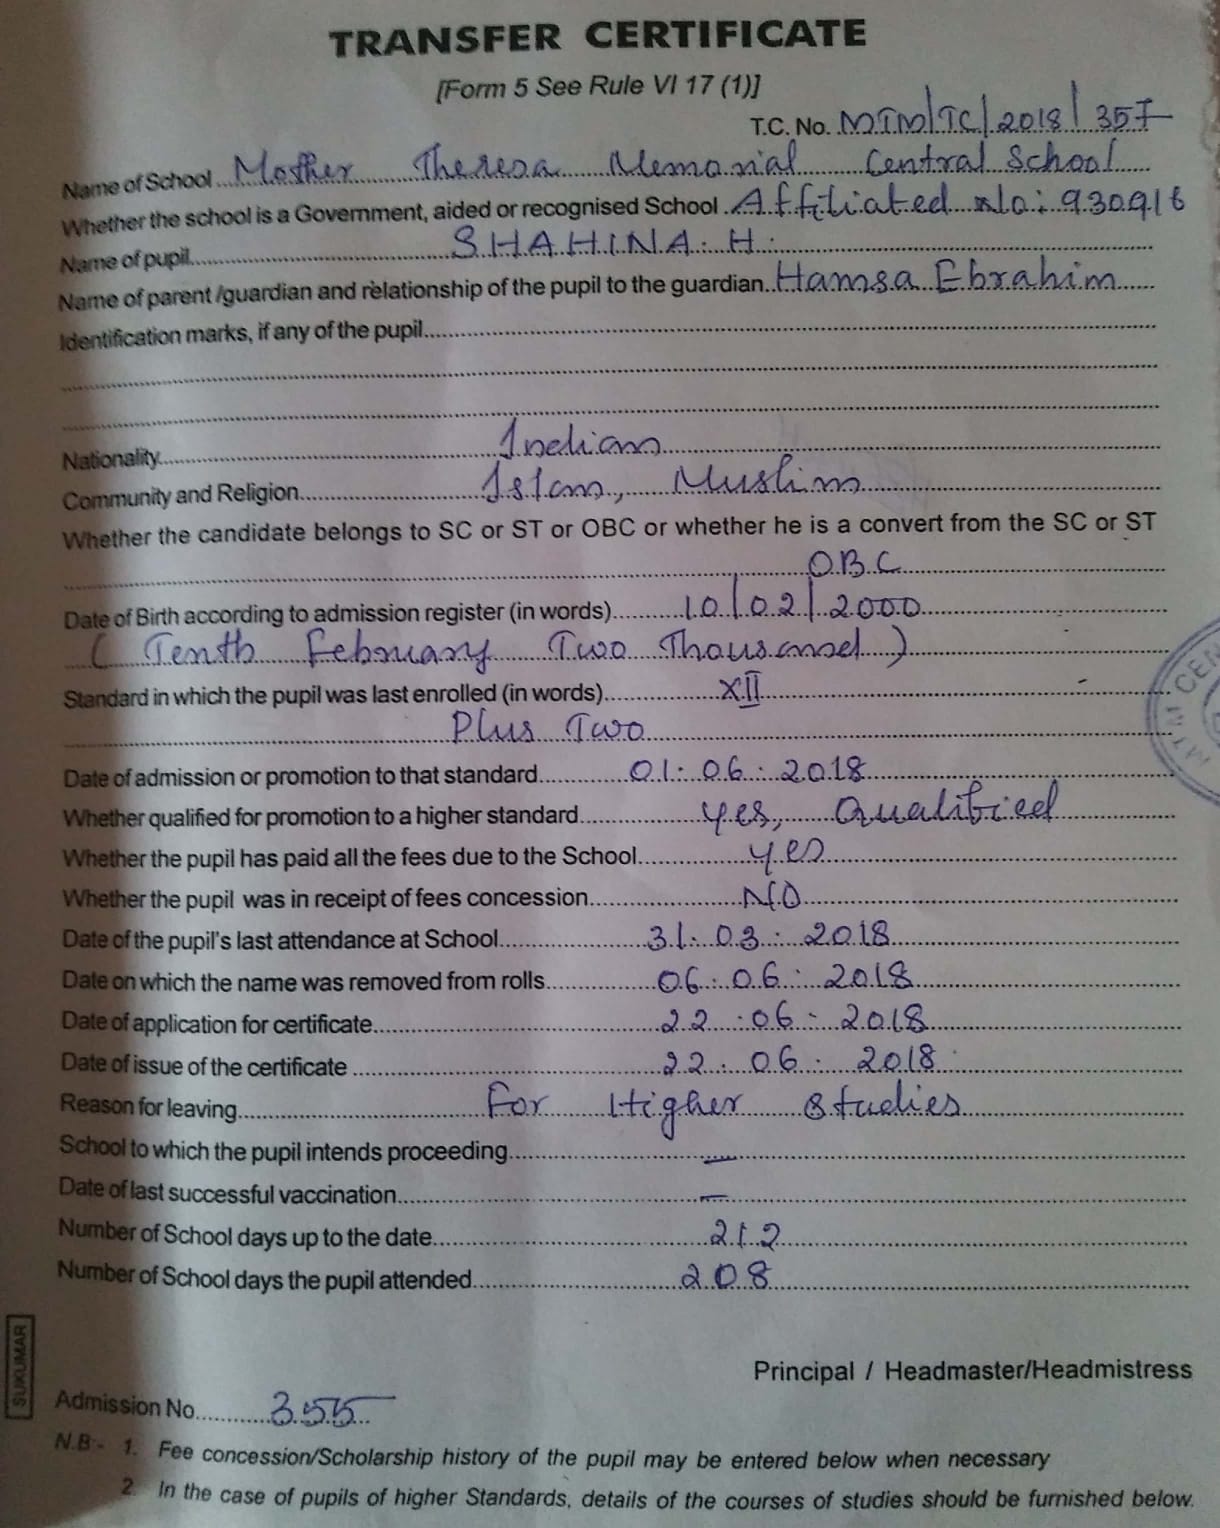 TRANSFER CERTIFICATE
[Form 5 See Rule VI 17 (1)]
T.C. No. MTM/TC/2018/357
Name of School Mother Theresa Memorial Central School
Whether the school is a Government, aided or recognised School Affiliated No: 930916
Name of pupil SHAHINA. H.
Name of parent /guardian and relationship of the pupil to the guardian Hamsa Ebrahim
Identification marks, if any of the pupil
Nationality Indian
Community and Religion Islam, Muslim
Whether the candidate belongs to SC or ST or OBC or whether he is a convert from the SC or ST
OBC
Date of Birth according to admission register (in words) 10/02/2000
(Tenth February Two Thousand)
Standard in which the pupil was last enrolled (in words) XII
Plus Two
Date of admission or promotion to that standard 01.06.2018
Whether qualified for promotion to a higher standard yes, Qualified
Whether the pupil has paid all the fees due to the School yes
Whether the pupil was in receipt of fees concession NO
Date of the pupil's last attendance at School 31.03.2018
Date on which the name was removed from rolls 06.06.2018
Date of application for certificate 22.06.2018
Date of issue of the certificate 22.06.2018
Reason for leaving For Higher Studies
School to which the pupil intends proceeding —
Date of last successful vaccination —
Number of School days up to the date 212
Number of School days the pupil attended 208
Principal / Headmaster/Headmistress
SUKUMAR
Admission No 355
N.B:- 1. Fee concession/Scholarship history of the pupil may be entered below when necessary
2. In the case of pupils of higher Standards, details of the courses of studies should be furnished below.